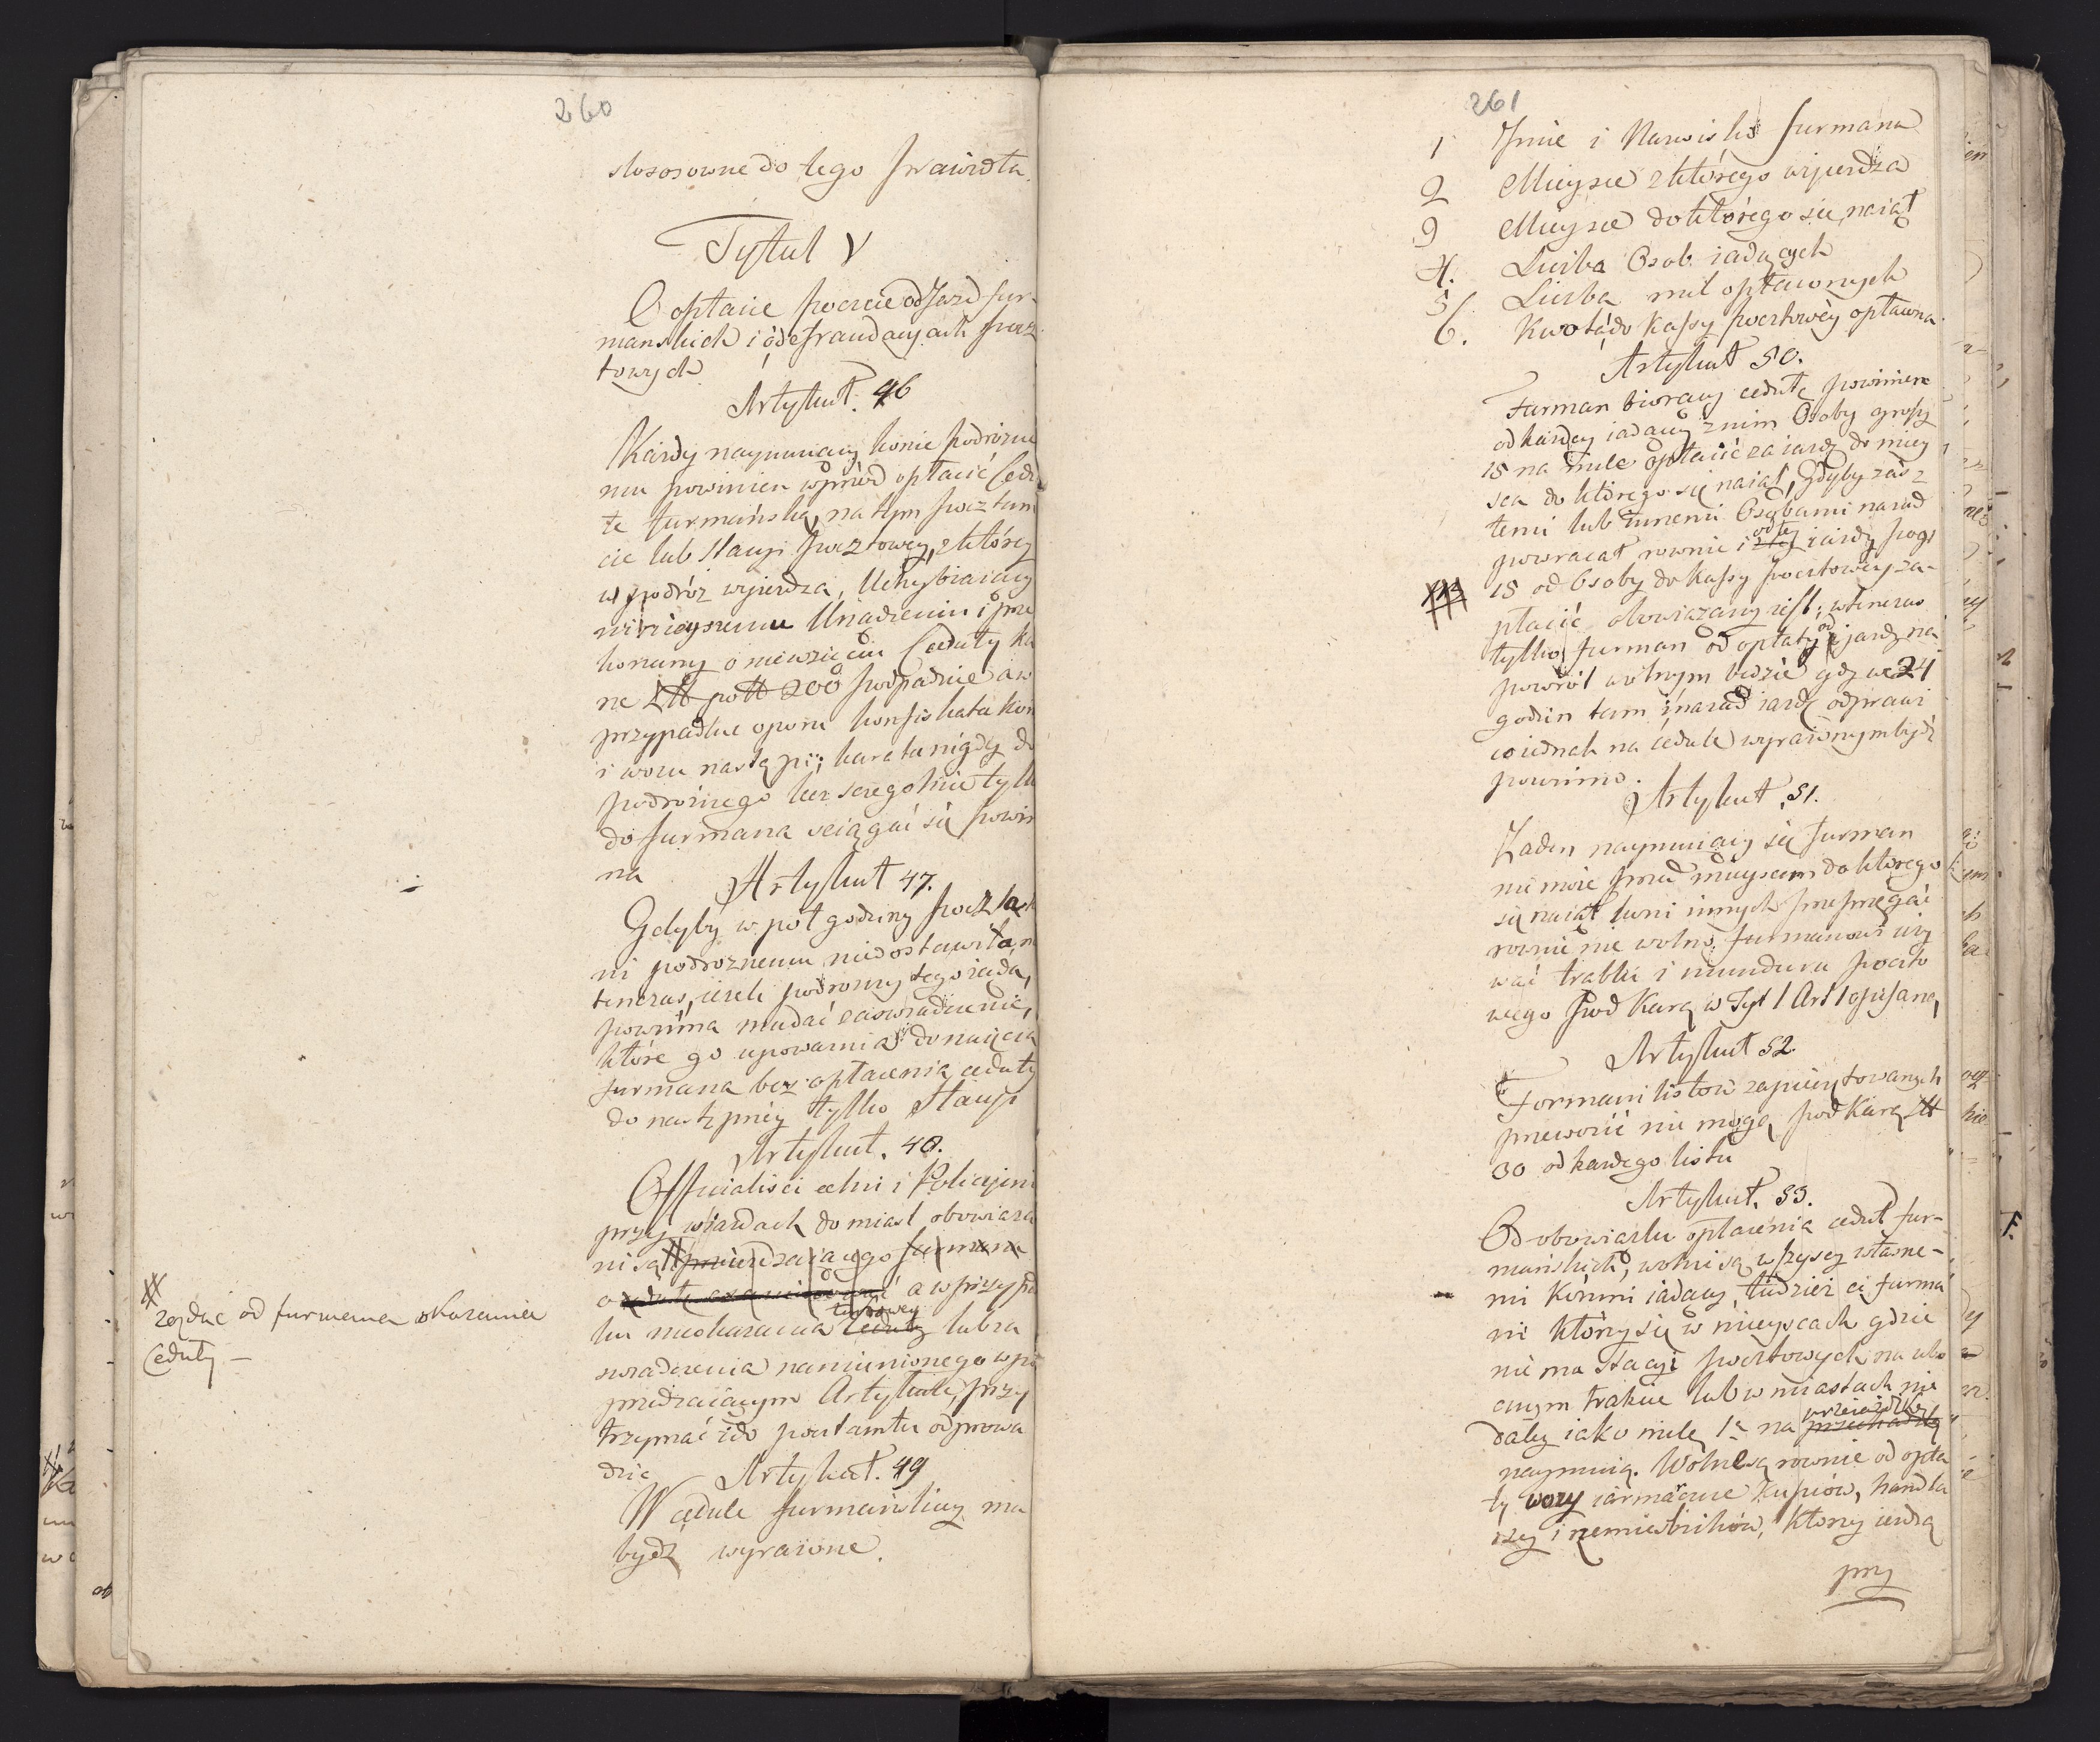 260
stososowne do tego prawidła.
Tytuł V
O opłacie poczcie od Jazd fur-
manskich i o defraudacyach pocz
towych
Artykuł. 46
Każdy naymuiący konie podrózne
mu powinien wprzód opłacić Cedu
łę furmańską, na tym pocztam
cie lub Stacyi pocztowey, z którey
w podróz wyjeżdza, Uchybiaiący
ninieyszemu Urządzeniu i prze
konany o niewzięciu Ceduły ka
rze 200 podpadnie a w
przypadku oporu konfiskata kon
i wozu nastąpi; kara ta nigdy do
podrożnego lecz szczegolnie tylk
do furmana sciągać się powin
na
Artykuł 47.
Gdyby w pół godziny poczta ko
ni podroznemu niedostawiła, n
tenczas, ieżeli podrozny tego żąda,
powinna mu dać zaświadczenie,
które go upoważnia do naięcia
furmana bez opłacenia ceduły
do następnéy tylko Stacyi
Artykuł. 48.
Officialiści celni i Policyjni
przy wiazdach do miast obowiąza
ni są przeieżdzaiącego furmana
a w przypad
ku nieokazania Ceduły lub za
swiadczenia namienionego w po
przedzaiącym Artykule, przy
trzymać i do pocztamtu odprowa
dzić
Artykuł. 49
W cedule furmańskiey ma
bydź wyrażone.
#
żądać od furmana okazania
Ceduły —
261
1 Imie i Nazwisko furmana
2 Mieysce z którego wyjeżdża
3 Mieysce do którego się naiął
4. Liczba Osob iadących
5 Liczba mil opłaconych
6. Kwota do Kassy pocztowéy opłacona.
Artykuł 50.
Furman biorący cedułę powinien
od każdey iadącey z nim Osoby groszy
15 na milę opłacić za iazdę do miey
sca do którego się naiął, Gdyby zaś z
temi lub innemi Osobami nazad
powracał rownie i od tey iazdy po gr
15 od Osoby do Kassy pocztowéy za-
płacić obowiązany iest; wtenczas
tylko furman od opłaty od jazdy na
powrót wolnym będzie gdy we 24
godzin tam i nazad iazdę odprawi
co iednak na cedule wyrażonym bydź
powinno.
Artykuł 51.
Żaden naymuiący się furman
nie może przed mieyscem do którego
się naiął koni innych przeprzęgać
rownie nie wolno furmanowi uży
wać trąbki i munduru poczto
wego pod karą w Tyt 1 Art 1 opisaną,
Artykuł 52.
Formani listow zapieczętowanych
przewozić nie mogą pod karą
30 od każdego listu
Artykuł. 53.
Od obowiązku opłacenia ceduł fur-
mańskich, wolni są wszyscy własne-
mi Końmi iadący tudzież ci furma
ni którzy się w mieyscach gdzie
nie ma Stacyi pocztowych na ubo
cznym trakcie lub w miastach nie
daléy iako milę 1ą na przeiażdżkę
naymuią. Wolne są rownie od opła
ty wozy iarmarczne Kupców, handla
rzy i rzemieślników, którzy ieżdżą
przy